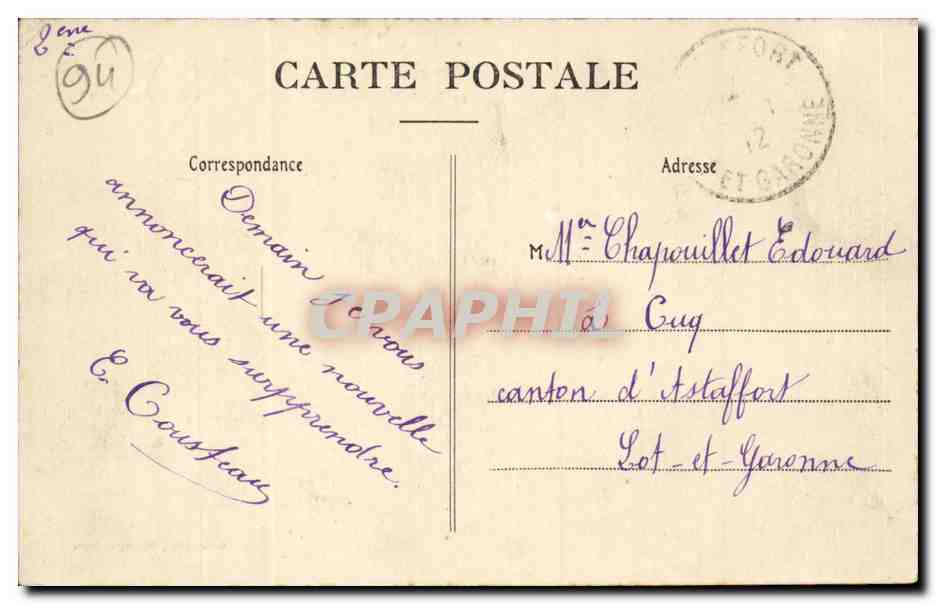 2ème
94
CARTE POSTALE
Correspondance
Adresse
FORT
12
ET GARONNE
Demain Je vous
annoncerait une nouvelle
qui va vous surpprendre.
E. Cousteau
M Mer Chapouillet Edouard
à Cuq
canton d'Astaffort
Lot-et-Garonne
CPAPHIL